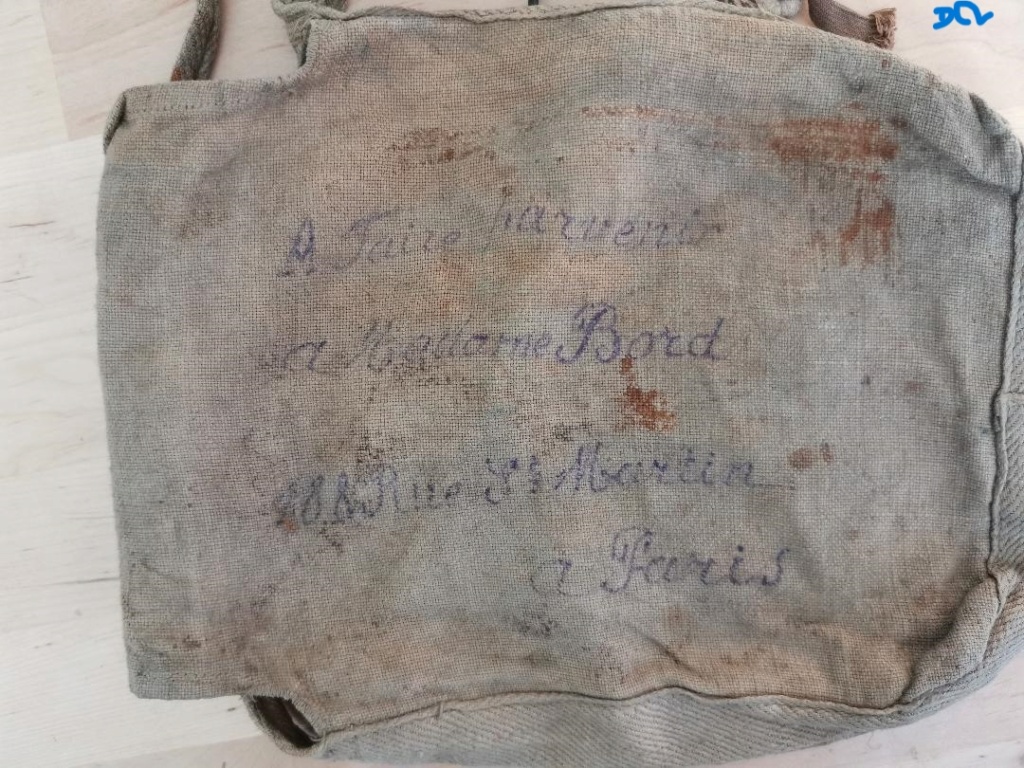 A Faire parvenir
a Madame Bord
Rue St Martin
a Paris